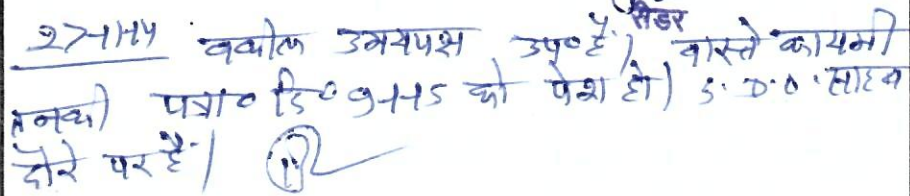 वकील उभयपक्ष उप० हैं। वास्ते कायमी
तनकी पत्रा० दि० 9-1-15 को पेश हो। S.D.O. साहब
दौरे पर हैं।